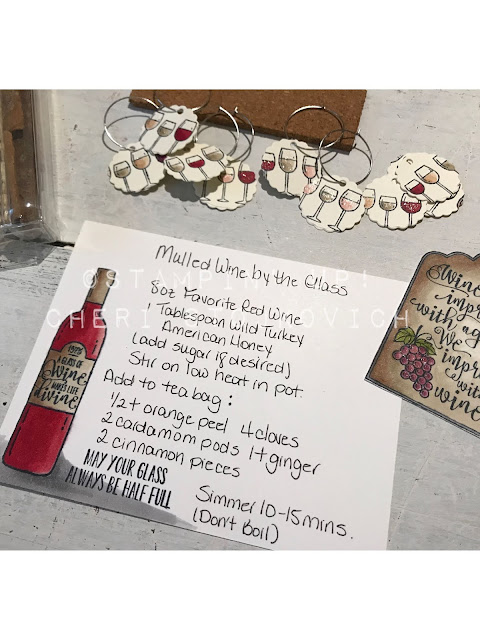 ©STAMPIN' UP!
Mulled Wine by the Glass
8oz Favorite Red Wine
1 Tablespoon Wild Turkey
American Honey
(add sugar if desired)
Stir on low heat in pot.
Add to tea bag:
1/2 t orange peel 4 cloves
2 cardamom pods 1 t ginger
2 cinnamon pieces
Simmer 10-15 mins.
(Don't Boil)
A GLASS OF
Wine
MAKES LIFE
divine
MAY YOUR GLASS
ALWAYS BE HALF FULL
Wine
with
We
with
wine